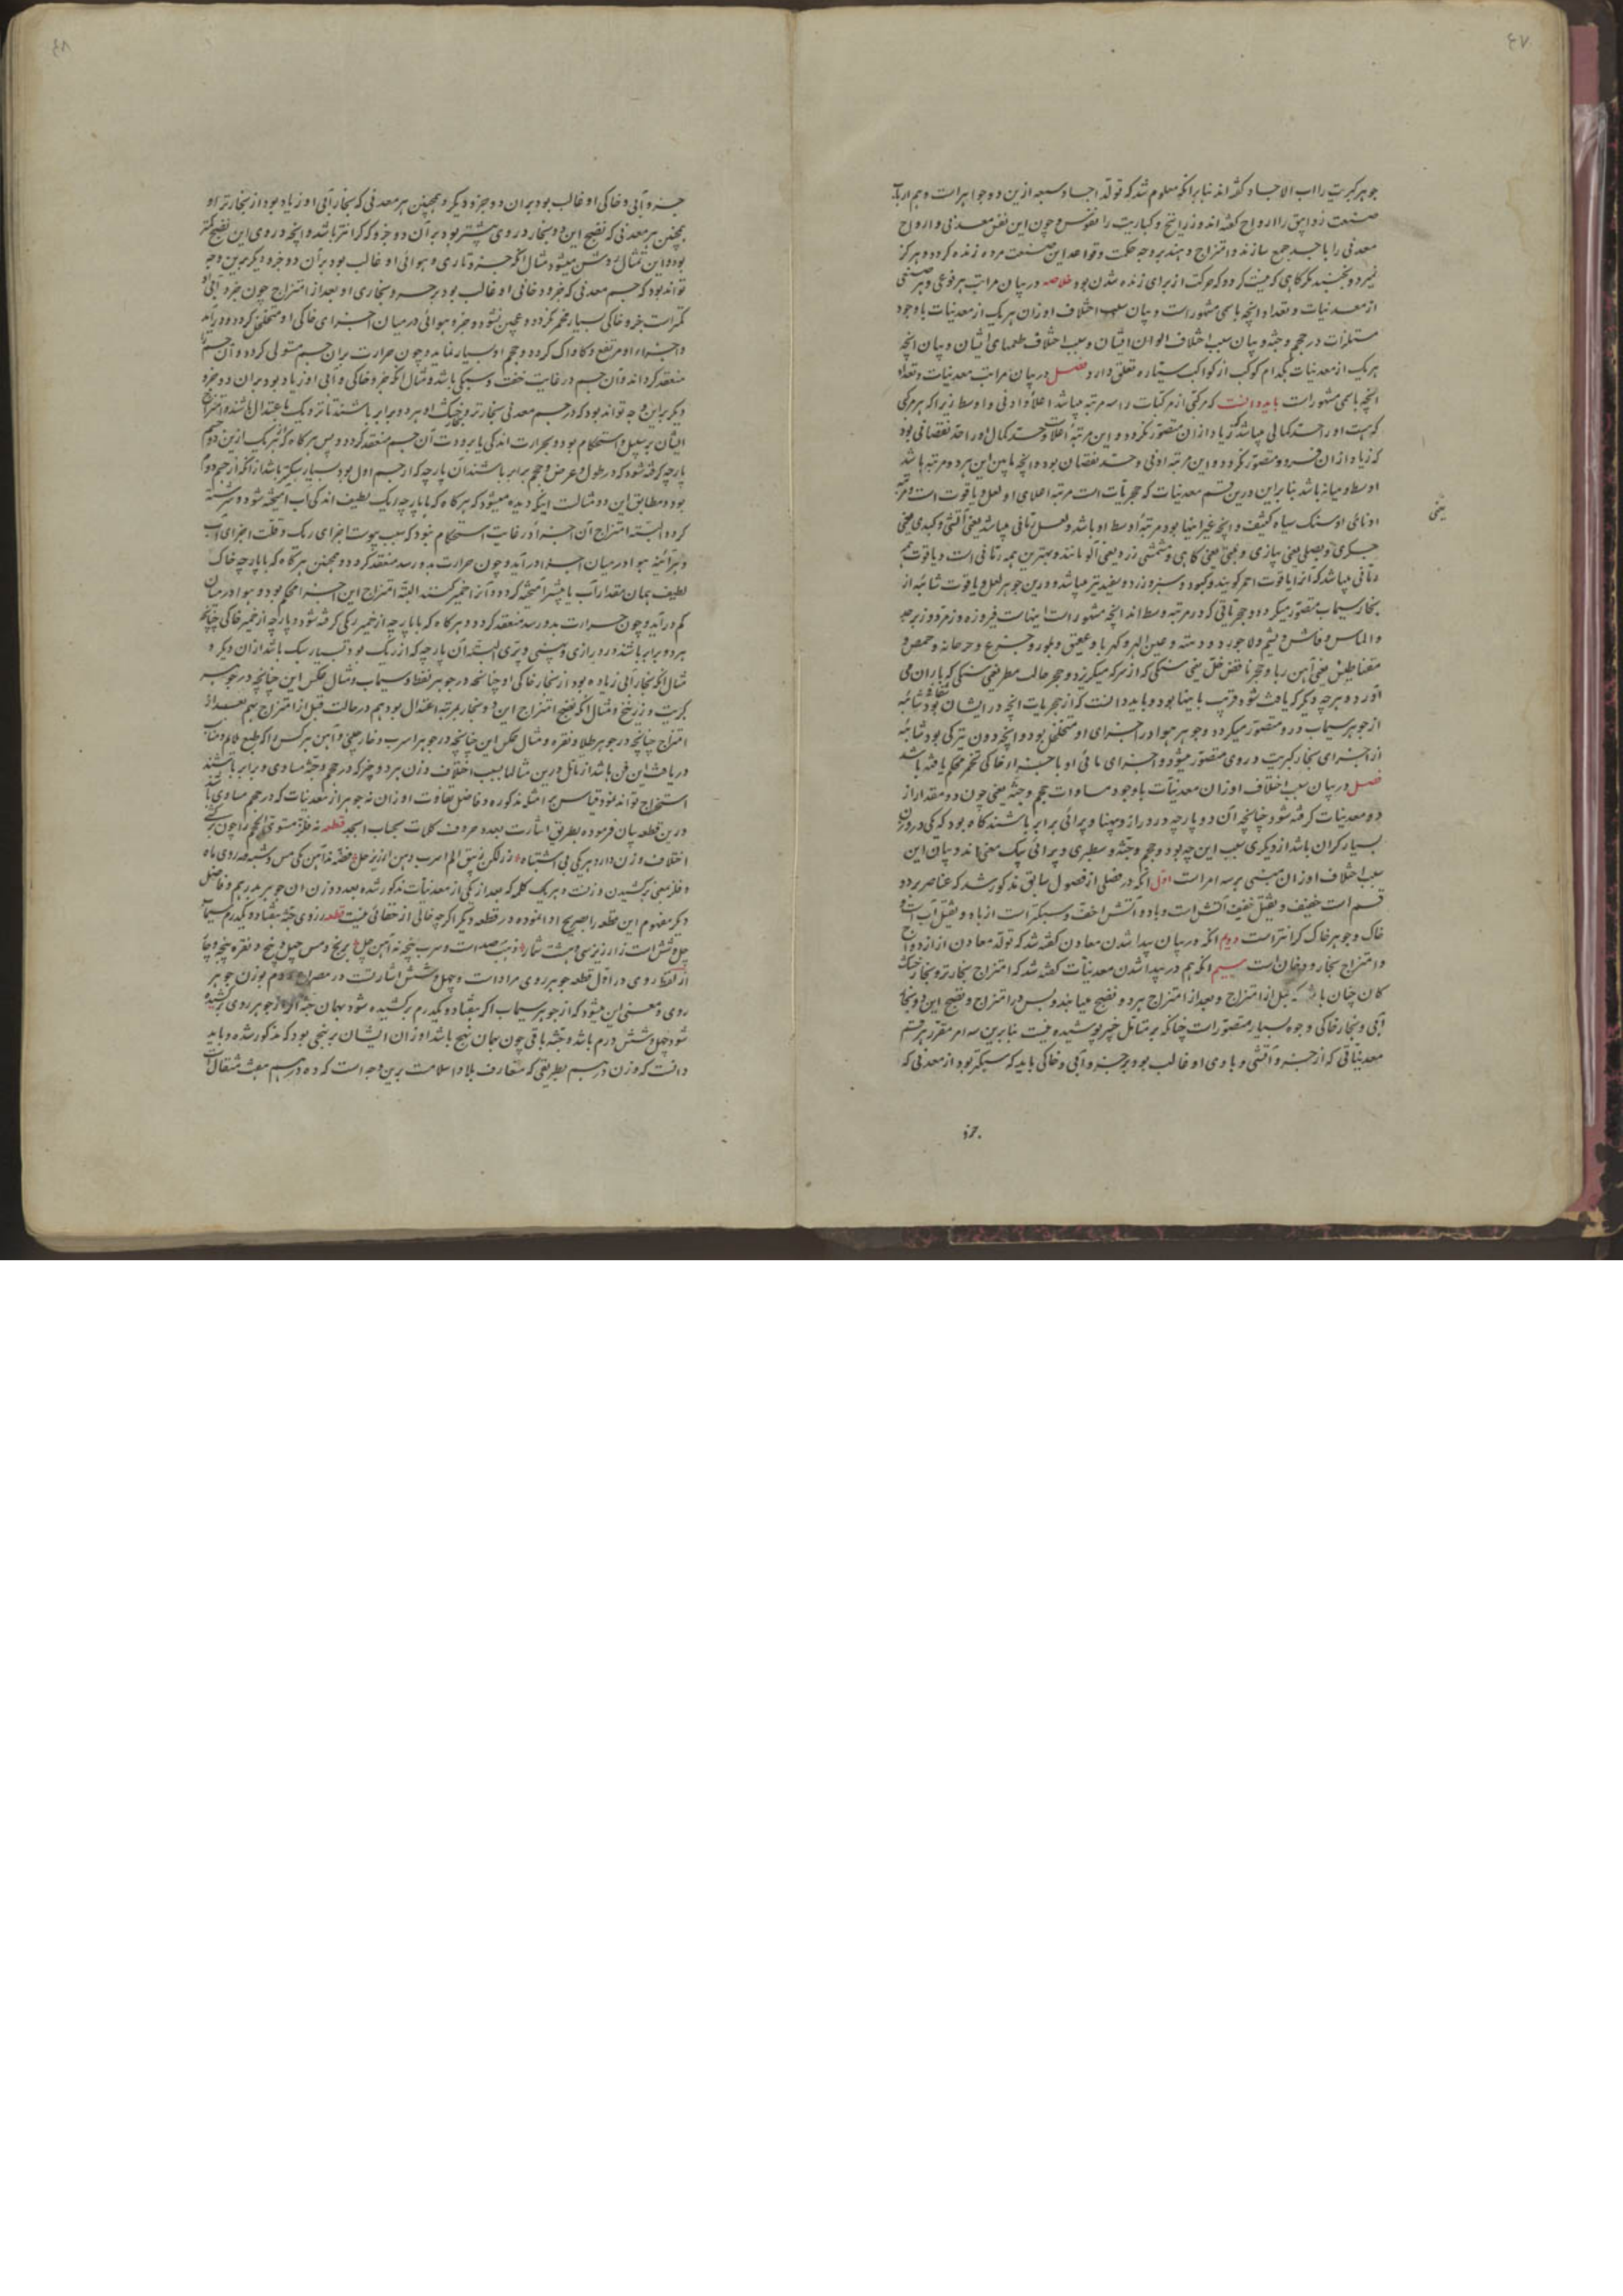 ۴۷
جوهر کبریت را اب الاجساد گفته اند بنا برانکه معلوم شد که تولد اجساد سبعه ازین دو جواهر است و هم ارباب
صنعت زوابق را ارواح گفته اند و زرانیخ و کباریت را نفوس و چون این نفس معدنی و ارواح
معدنی را با جسد جمع سازند و امتزاج دهند بر وجه حکمت و قواعد این صنعت مرده زنده کردد و هرکز
نمیرد و نجنبد مکر کاهی که میت کردد که حرکت از برای زنده شدن بود خلاصه در بیان مراتب هر نوعی و هر صنفی
از معدنیات و تعداد انچه باسمی مشهور است و بیان سبب اختلاف اوزان هر یک از معدنیات با وجود
مساوات در حجم و جثه و بیان سبب اختلاف الوان ایشان و سبب اختلاف طعمهای ایشان و بیان انچه
هر یک از معدنیات بکدام کوکب از کواکب سیاره تعلق دارد فصل در بیان مراتب معدنیات و تعداد
انچه باسمی مشهور است باید دانست که هر رکنی از مرکبات را سه مرتبه میباشد اعلا و ادنی و اوسط زیرا که هر مرکبی
که هست او را حد کمالی میباشد که زیاد از ان متصور نکردد و این مرتبه اعلاست و حد کمال او را حد نقصانی بود
که زیاد از ان فرو متصور نکردد و این مرتبه ادنی و حد نقصان بود و انچه مابین این هر دو مرتبه باشد
اوسط و میانه باشد بنا براین درین قسم معدنیات که حجریات است مرتبه اعلای او لعل و یاقوت است و مرتبه
ادنای او سنک سیاه کثیف و انچه غیر اینها بود مرتبه اوسط او باشد و لعل رمانی میباشد یعنی آتشی و کبدی یعنی
جکری و بصلی یعنی پیازی و یعنی کاهی و مشمشی زرد یعنی آلو مانند و بهترین همه رمانی است و یاقوت هم
رمانی میباشد که آنرا یاقوت احمر کویند و کبود و سبز و زرد و سفید نیز میباشد و درین جوهر لعل و یاقوت شائبه از
بخار سیماب متصور میکردد و حجریاتی که در مرتبه وسط اند انچه مشهور است اینهاست فیروزه و زمرد و زبرجد
و الماس و یشم و لاجورد و دهنه و عین الهر و کهربا و عقیق و بلور و جزع و
مقناطیس یعنی آهن ربا و حجر یعنی سنکی که از سرکه میکریزد و حجر جالب مطر یعنی سنکی که باران می
آورد و هر چه دیکر که یافت شود قریب باینها بود و باید دانست که از حجریات انچه در ایشان بود شائبه
از جوهر سیماب در و متصور میکردد و جوهر هوا در اجزای او متخلخل بود و انچه دون تیرکی بود شائبه
از اجزای بخار کبریت در وی متصور میشود و اجزای مائی او با جزء ارضی خاکی تخمر محکم یافته باشد
فصل در بیان سبب اختلاف اوزان معدنیات با وجود مساوات حجم و جثه یعنی چون دو مقدار از
دو معدنیات کرفته شود چنانچه آن دو پارچه در دراز و پهنا و پرائی برابر باشند کاه بود که یکی در وزن
بسیار کران باشد از دیکری سبب این چه بود و حجم و جثه و سطبری و پرائی بیک معنی اند و بیان این
سبب اختلاف اوزان مبتنی بر سه امر است اول انکه در فصلی از فصول سابق مذکور شد که عناصر بر دو
قسم است خفیف و ثقیل خفیف آتش است و باد و آتش اخف و سبکتر است از باد و ثقیل آب است و
خاک و جوهر خاک کرانتر است دویم انکه در بیان پیدا شدن معادن کفته شد که تولد معادن از ازدواج
و امتزاج بخار و دخان است سییم انکه هم در پیدا شدن معدنیات کفته شد که امتزاج بخار تر و بخار خشک
کان چنان باشد که قبل از امتزاج و بعد از امتزاج هر دو نضج میابند و پس در امتزاج و نضج این دو بخار
آبی و بخار خاکی وجوه بسیار متصور است چنانکه بر متامل خبیر پوشیده نیست بنا برین سه امر مقرر هر قسم
معدنیاتی که از جزء و آتشی و بادی او غالب بود بر جزء و آبی و خاکی باید که سبکتر بود از معدنی که
جزء
۴۸
جزء و آبی و خاکی او غالب بود بران دو جزء دیکر و همچنین هر معدنی که بخار آبی او زیاد بود از بخار تر او
همچنین هر معدنی که نضج این دو بخار در وی بیشتر بود بر آن دو جزء که کرانتر باشد و انچه در وی این نضج کمتر
بود و این تمثال روشن میشود مثال انکه جزء و ناری و هوائی او غالب بود بر آن دو جزء دیکر برین وجه
تواند بود که جسم معدنی که جزء دخانی او غالب بود بر جزء و بخاری او بعد از امتزاج چون جزء آبی او
کمتر است جزء خاکی بسیار مخمر نکردد و عجین نشود و جزء هوائی در میان اجزای خاکی او متخلخل کردد و در آید
و اجزاء او مرتفع و کاواک کردد و حجم او بسیار نماید و چون حرارت بران جسم مستولی کردد و آن جسم را
منعقد کرداند و آن جسم در غایت خفت و سبکی باشد و مثال انکه جزء خاکی و آبی او زیاد بود بران دو جزء
دیکر براین وجه تواند بود که در جسم معدنی بخار تر و بخار خشک او هر دو برابر باشند تا نزدیک باعتدال باشند و امتزاج
ایشان بر سبیل استحکام بود و بحرارت اندکی یا برودت آن جسم منعقد کردد و پس هر کاه که از هر یک ازین دو جسم
پارچه کرفته شود که در طول و عرض و حجم برابر باشند آن پارچه که از جسم اول بود بسیار سبکتر باشد از انکه از جسم دوم
بود و مطابق این دو مثالست اینکه دیده میشود که هر کاه که با پارچه ریک لطیف اندکی آب آمیخته شود و سرشته
کردد البته امتزاج آن اجزاء در غایت استحکام نبود که سبب یبوست اجزای ریک و قلت اجزای آب
و هرآئینه هوا در میان اجزاء در آید و چون حرارت بدو رسد منعقد کردد و همچنین هر کاه که با پارچه خاک
لطیف همان مقدار آب یا بیشتر آمیخته کردد و آنرا خمیر کنند البته امتزاج این اجزاء محکم بود و هوا در میان
کم در آید و چون حرارت بدو رسد منعقد کردد و هر کاه که با پارچه از خمیر ریکی کرفته شود و پارچه از خمیر خاکی چنانچه
هر دو برابر باشند در درازی و پهنی و پری البته آن پارچه که از ریک بود بسیار سبک باشد از ان دیکر و
مثال انکه بخار آبی زیاده بود از بخار خاکی او چنانچه در جوهر نفط و سیماب و مثال عکس این چنانچه در جوهر
کبریت و زرنیخ و مثال انکه نضج امتزاج این دو بخار بمرتبه اعتدال بود هم در حالت قبل از امتزاج هم بعد از
امتزاج چنانچه در جوهر طلا و نقره و مثال عکس این چنانچه در جوهر اسرب و خارچینی و آهن هر کس را که طبع ملایم و مناسب
دریافت این فن باشد از تامل درین مثالها سبب اختلاف وزن هر دو چیز که در حجم و جثه مساوی و برابر باشند
استخراج تواند نمود قیاس بر امثله مذکوره و فاضل تفاوت اوزان نه جوهر از معدنیات که در حجم مساوی باشند
درین قطعه بیان فرموده بطریق اشارت بعدد حروف کلمات بحساب ابجد قطعه نه فلز مستوی الحجم را چون برکشی
اختلاف وزن دارد هریکی بی اشتباه زر لکن زیبق الم اسرب دهن ارزیز حل فضه ند آهن یکی مس و شبه مه روی ماه
و فلز بمعنی برکشیدن وزنست و هر یک کلمه که بعد از یکی از معدنیات مذکور شده بعدد وزن ان جوهر بدرهم و فاضل
دیکر مفهوم این قطعه را بصریح ادا نموده در قطعه دیکر اکرچه خالی از خفائی نیست قطعه ز روی جثه هفتاد و یکدرم سیماب
چل و شش است و ز ارزیز سی و هشت شمار ذهب صد است و سرب پنجه نه آهن چل برنج و مس چهل و پنج و نقره پنجه و چار
از لفظ روی در اول قطعه جوهر روی مراد است و چهل و شش اشارتست در مصراع دوم بوزن جوهر
روی و معنی این میشود که از جوهر سیماب اکر هفتاد و یکدرم برکشیده شود بهمان جثه اکر از جوهر روی برکشیده
شود چهل و شش درم باشد و جثه باقی چون بهمان نهج باشد اوزان ایشان بر نهجی بود که مذکور شده و باید
دانست که وزن درهم بطریقی که متعارف بلاد اسلامست برین وجه است که ده درهم هفت مثقال است